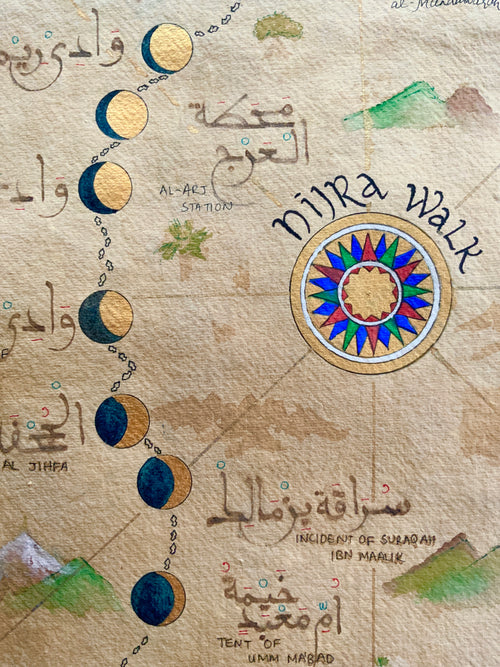 al-Munawwarah
وادي ريم
محطة
العرج
AL-ARJ
STATION
HIJRA WALK
وادي
وادي
الجحفة
AL JIHFA
سراقة بن مالك
INCIDENT OF SURAQAH
IBN MAALIK
خيمة
أم معبد
TENT OF
UMM MA'BAD